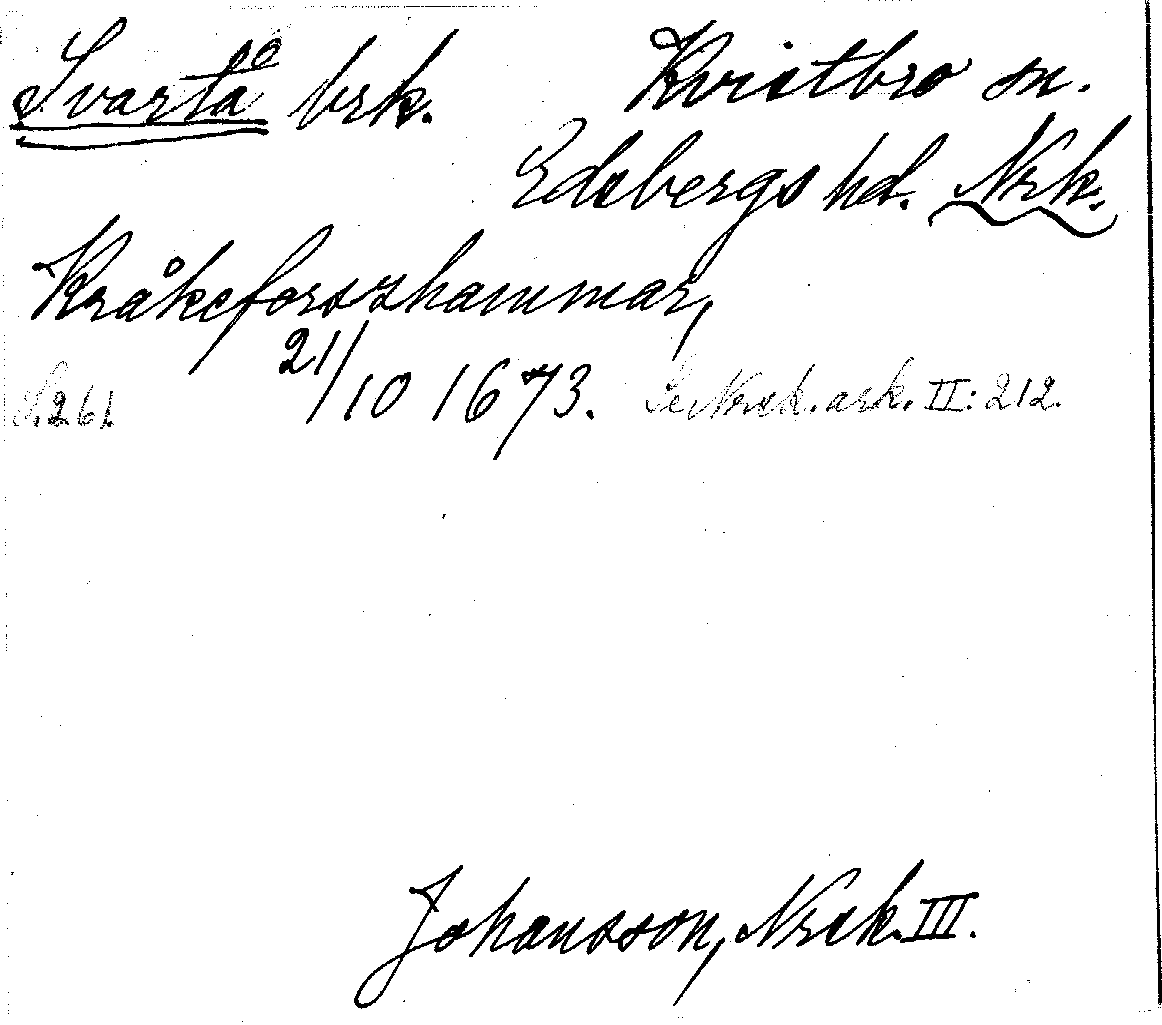 Svartå brk. Kvistbro sn.
Edsbergs hd. Nrk.
Kråkeforszhammar,
21/10 1673.
S. 261. Se Nrek. ark. II: 212.
Johansson, Nrek. III.